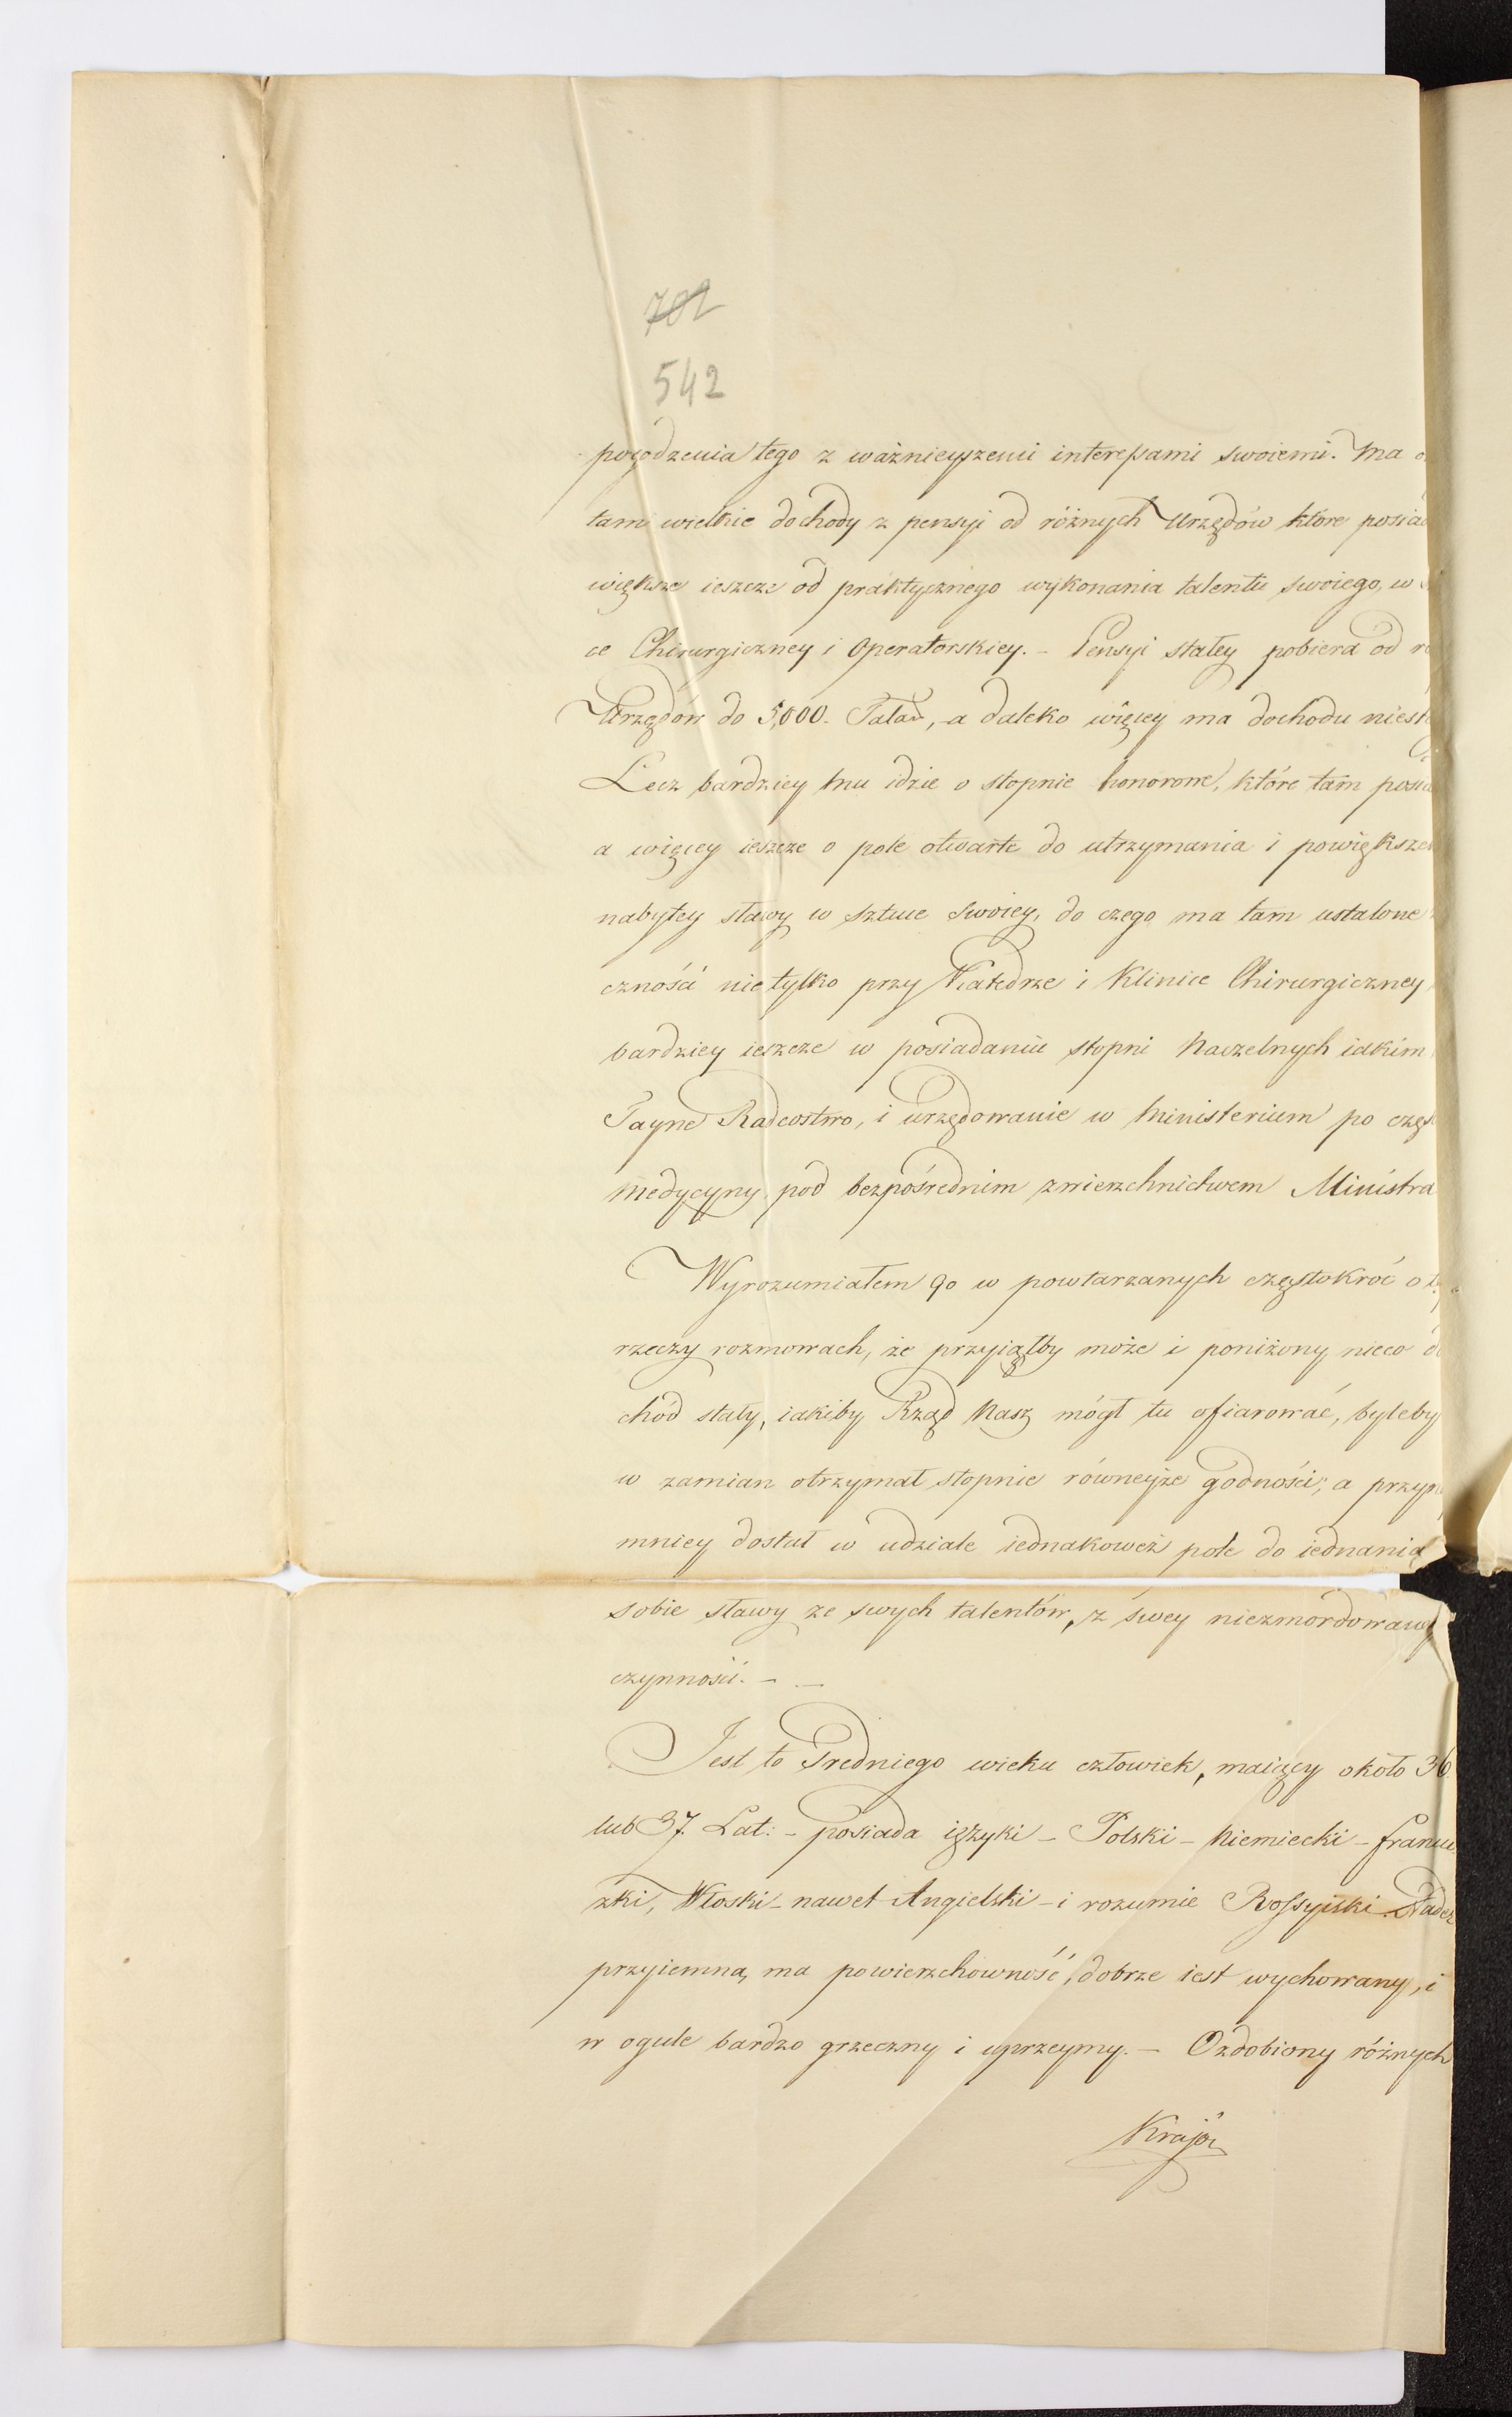 702
542
pogodzenia tego z ważnieyszemi interessami swoiemi. Ma
tam wielkie dochody z pensyi od różnych Urzędów które posia
większe ieszcze od praktycznego wykonania talentu swoiego, w
ce Chirurgiczney i Operatorskiey. – Pensyi stałey pobiera od
Urzędów do 5,000. Talar, a daleko więcey ma dochodu niest
Lecz bardziey mu idzie o stopnie honorowe, które tam posia
a więcey ieszcze o pole otwarte do utrzymania i powiększe
nabytey sławy w sztuce swoiey, do czego ma tam ustalone
czności nietylko przy Katedrze i Klinice Chirurgiczney
bardziey ieszcze w posiadaniu stopni Naczelnych iakim
Tayne Radcostwo, i urzędowanie w Ministerium po częś
medycyny pod bezpośrednim zwierzchnictwem Ministra
Wyrozumiałem go w powtarzanych częstokroć o
rzeczy rozmowach, że przyiąłby może i poniżony nieco d
chód stały, iakiby Rząd Nasz mógł tu ofiarować, byleby
w zamian otrzymał stopnie równeyże godności; a przyn
mniey dostał w udziale iednakoweż pole do iednania
sobie sławy ze swych talentów, z swey niezmordowaney
czynności. – –
Jest to Średniego wieku człowiek, maiący około 36
lub 37. Lat: – posiada ięzyki – Polski – Niemiecki – francu
zki, Włoski – nawet Angielski – i rozumie Rossyiski. Nader
przyiemną ma powierzchowność, dobrze iest wychowany, i
w ogule bardzo grzeczny i uprzeymy. – Ozdobiony różnych
Krajów